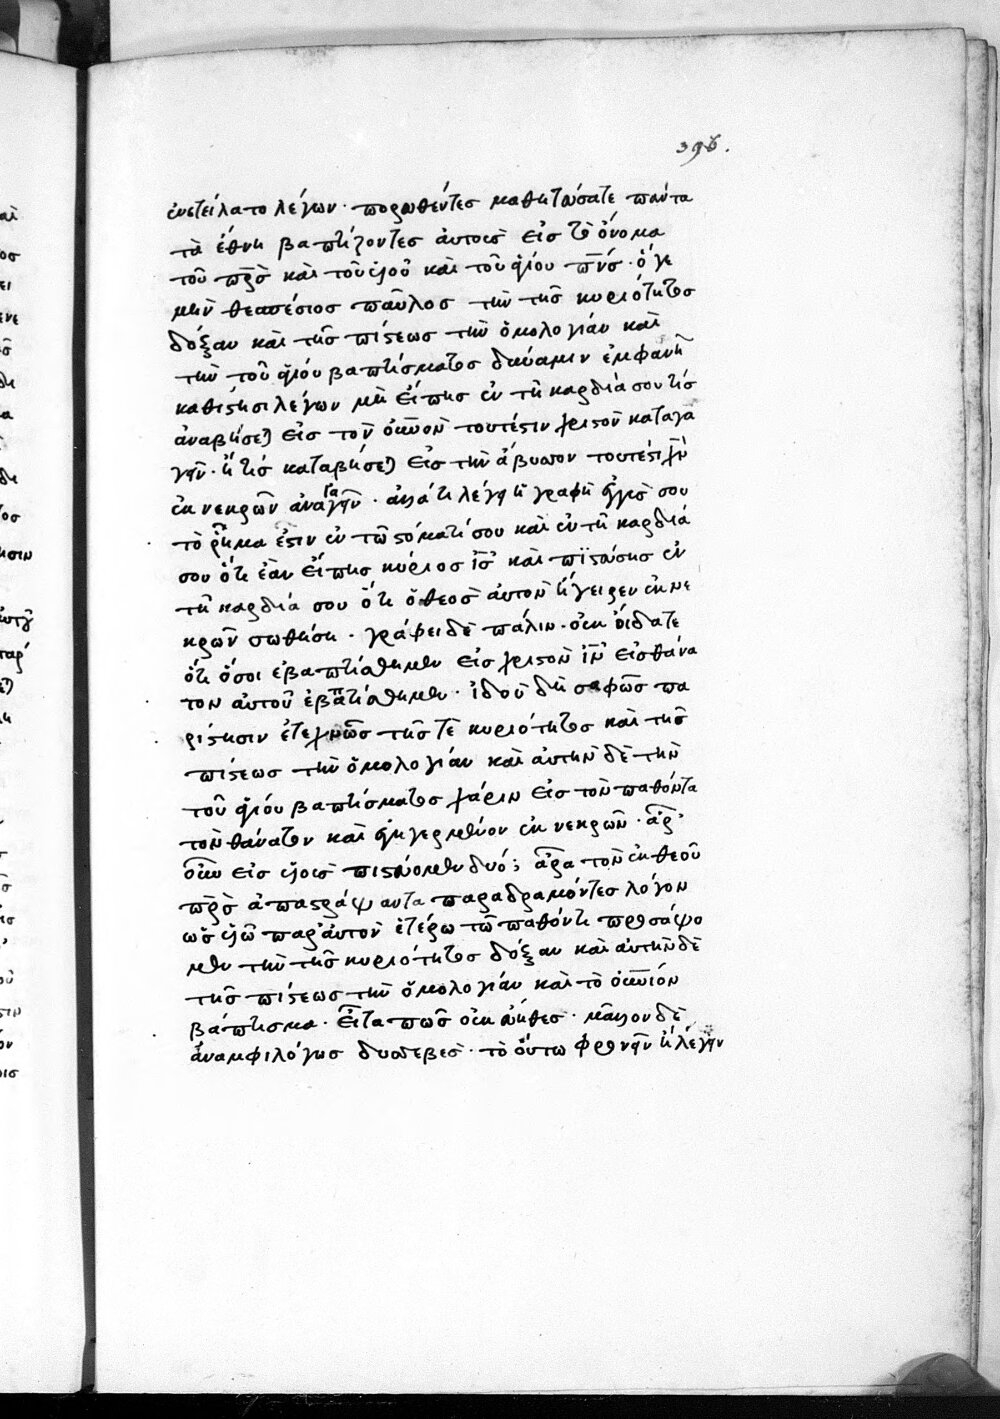 396.
ἐνετείλατο λέγων · πορευθέντες μαθητεύσατε πάντα
τὰ ἔθνη βαπτίζοντες ἀυτοὺς εἰς τὸ ὄνομα
τοῦ πρς καὶ τοῦ υἱοῦ καὶ τοῦ ἁγίου πνς · ὅ γε
μὴν θεσπέσιος παῦλος τὴν τῆς κυριότητος
δόξαν καὶ τῆς πίστεως τὴν ὁμολογίαν καὶ
τὴν τοῦ ἁγίου βαπτίσματος δύναμιν ἐμφανῆ
καθίστησι λέγων μὴ εἴπης ἐν τῆ καρδία σου τίς
ἀναβήσεται εἰς τὸν ὀυνὸν τουτέστιν χριστὸν καταγα
γεῖν · ἢ τίς καταβήσεται εἰς τὴν ἄβυσσον τουτέστι χν
ἐκ νεκρῶν ἀναγαγεῖν · ἀλλὰ τι λέγει ἡ γραφὴ ἐγγύς σου
τὸ ῥῆμα ἐστιν ἐν τῶ στόματί σου καὶ ἐν τῆ καρδιά
σου ὅτι ἐὰν εἴπης κύριος ις καὶ πιστεύσης ἐν
τῆ καρδιά σου ὅτι ὁ θεὸς ἀυτὸν ἤγειρεν ἐκ νε
κρῶν σωθήση · γράφει δὲ πάλιν · οὐκ ὄιδατε
ὅτι ὅσοι ἐβαπτίσθημεν εἰς χριστὸν ιν εἰς θάνα
τον αὐτοῦ ἐβαπτίσθημεν · ἰδοὺ δὴ σαφῶς πα
ρίστησιν ἐτεχνῶς τῆς τὲ κυριότητος καὶ τῆς
πίστεως τὴν ὁμολογίαν καὶ ἀυτὴν δὲ τὴν
τοῦ ἁγίου βαπτίσματος χάριν εἰς τὸν παθόντα
τὸν θάνατον καὶ ἐγηγερμένον ἐκ νεκρῶν · ἆρ'
οὖν εἰς υἱοὺς πιστεύομεν δυό; ἆρα τὸν ἐκ θεοῦ
πρς ἀπαστράψαντα παραδραμόντες λόγον
ὡς υἱῶ παρ' ἀυτὸν ἑτέρω τῶ παθόντι προσάψο
μεν τὴν τῆς κυριότητος δόξαν καὶ ἀυτὴν δὲ
τῆς πίστεως τὴν ὁμολογίαν καὶ τὸ ὀυνιόν
βάπτισμα · εἶτα πῶς οὐκ ἔυηθες · μᾶλλον δὲ
ἀναμφιλόγως δυσσεβὲς · τὸ ὅυτω φρονεῖν ἢ λέγειν